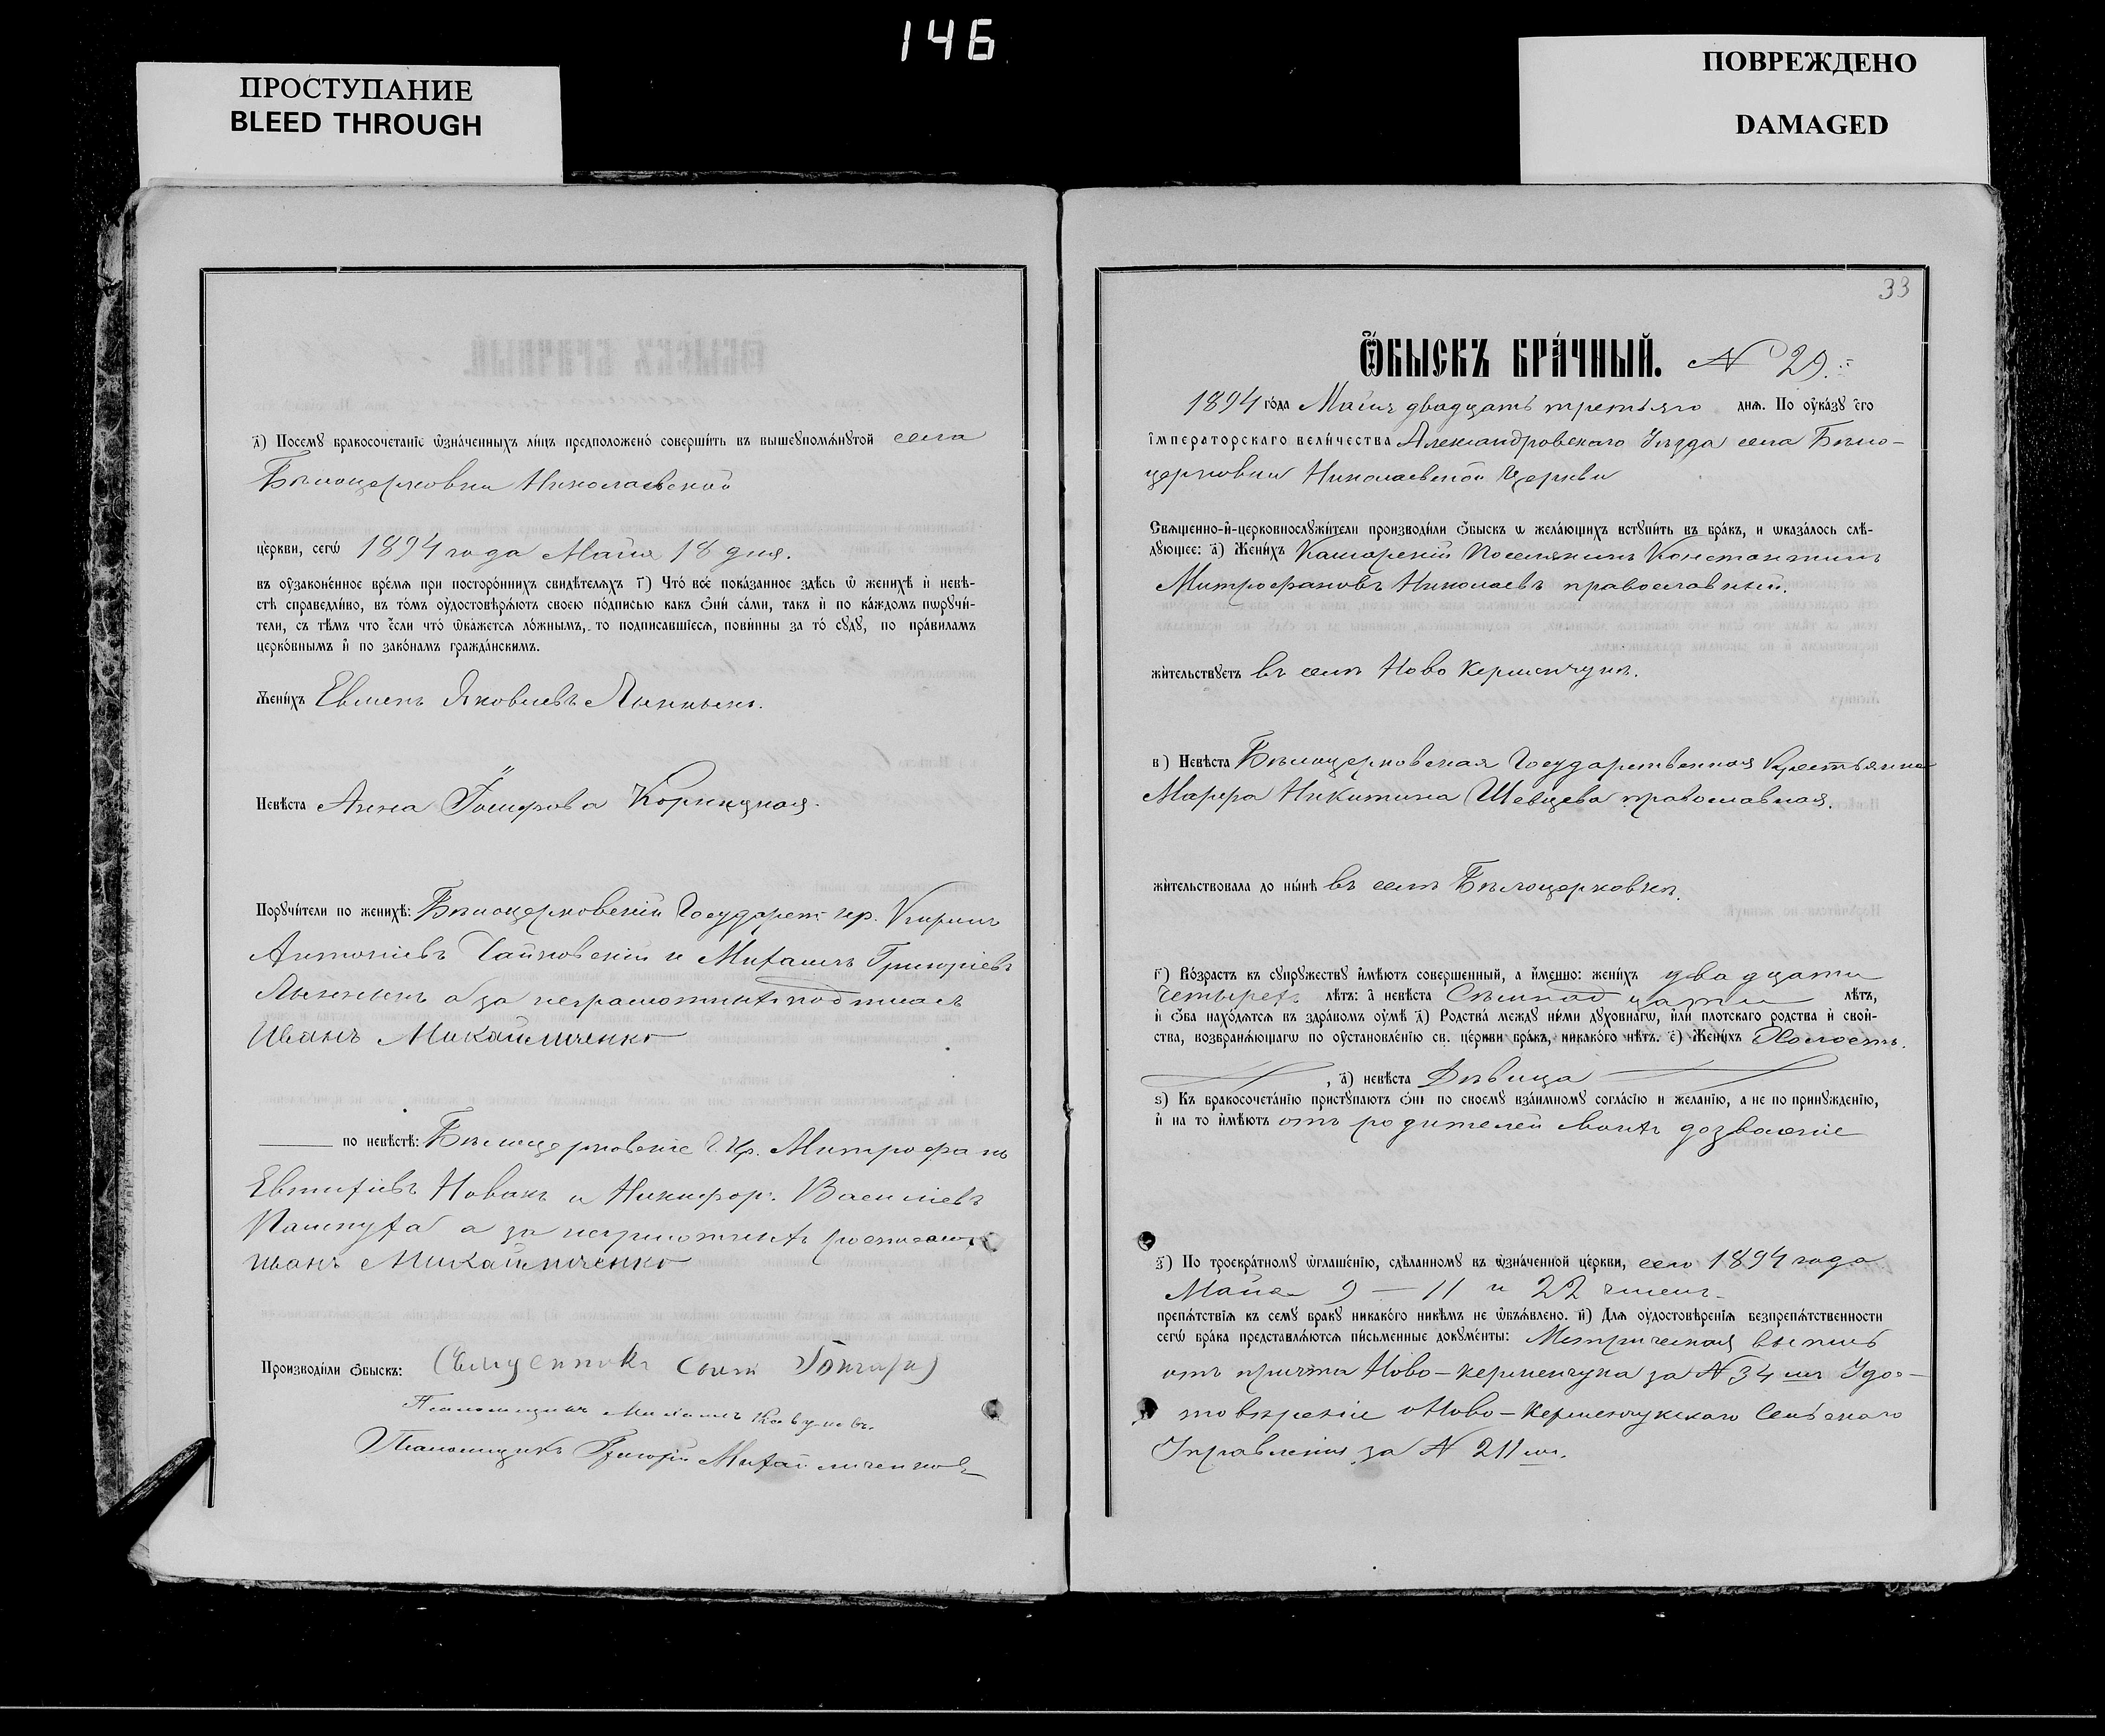 146
ПРОСТУПАНИЕ
BLEED THROUGH
ПОВРЕЖДЕНО
DAMAGED
д҃) Посемꙋ бракосочетаніе ѡзна́ченныхъ ли́цъ предположено́ соверши́ть въ вышеупомѧ́нꙋтой села
Бѣлоцерковки Николаевской
це́ркви, сегѡ̀ 1894 года Мая 18 дня.
въ оу҆зако́ненное вре́мѧ при посторо́ннихъ свидѣ́телѧхъ г҃) Что̀ всѐ пока́занное здѣ́сь ѡ҆ женихѣ̀ и҆ невѣ́-
стѣ справедли́во, въ то́мъ оу҆достовѣрѧ́ютъ своєю по́дписью какъ ѻ҆нѝ са́ми, такъ и҆ по ка́ждомъ пѡрꙋчи́-
тели, съ тѣ́мъ что є҆́сли что̀ ѡ҆ка́жетсѧ ло́жнымъ, то подписа́вшїесѧ, пови́нны за то̀ сꙋдꙋ̀, по пра́виламъ
церко́внымъ и҆ по зако́намъ гражда́нскимъ.
Жени́хъ Евмен Яковлевъ Лынникъ.
Невѣ́ста Анна Корницкая.
Порꙋчи́тели по женихѣ̀: Бѣлоцерковскій Государст. кр. Кирилъ
Антоніевъ Чайковскій и Михаилъ Григоріевъ
Лынникъ а за неграмотныхъ подписалъ
Иванъ Михайличенко
по невѣ́стѣ: Бѣлоцерковскіе Г. Кр. Митрофанъ
Евтихіевъ Новакъ и Никифор. Василіевъ
а за неграмотныхъ
Иванъ Михайличенко
Производи́ли ѻ҆́быскъ: Священникъ
Псаломщикъ Михаилъ
Псаломщикъ Григорій Михайличенковъ
33
Ѻ҆́БЫСКЪ БРА́ЧНЫЙ. N 29.
1894 го́да Мая двадцать третьяго днѧ. По оу҆ка́зꙋ Є҆гѡ̀
і҆мпера́торскагѡ вели́чества Александровскаго Уѣзда села Бѣло-
церковки Николаевской Церкви
Свѧще́нно-и҆-церковнослꙋжи́тели производи́ли ѻ҆́быскъ ѡ҆ жела́ющихъ встꙋпи́ть въ бра́къ, и ѡ҆каза́лось слѣ́-
дꙋющее: а҃) Жени́хъ Поселянинъ Константинъ
Митрофановъ Николаевъ православный.
жи́тельствꙋетъ въ селѣ Ново Керменчукѣ.
в҃) Невѣ́ста Бѣлоцерковская Государственная Крестьянка
Марфа Никитина Шевцева православная.
жи́тельствовала до ны́нѣ въ селѣ Бѣлоцерковкѣ.
г҃) Во́зрастъ къ сꙋпрꙋ́жествꙋ и҆мѣ́ютъ соверше́нный, а и҆́менно: жени́хъ двадцати
четырехъ лѣ́тъ: а҆ невѣ́ста Сѣмнадцати лѣ́тъ,
и҆ ѻ҆́ба нахо́дѧтсѧ въ здра́вомъ оу҆мѣ̀ д҃) Родства̀ междꙋ ни́ми дꙋхо́внагѡ, и҆лѝ пло́тскаго родства̀ и҆ свой-
ства̀, возбранѧ́ющагѡ по оу҆становле́нію св. це́ркви бра́къ, никако́го нѣ́тъ. є҃) Жени́хъ Холостъ.
, а҃) невѣ́ста Дѣвица
ѕ҃) Къ бракосочета́нію пристꙋпа́ютъ ѻ҆нѝ по своемꙋ̀ взаи́мномꙋ согла́сію и жела́нію, а не по принꙋжде́нію,
и҆ на то и҆мѣ́ютъ отъ родителей своихъ дозволеніе
з҃) По троекра́тномꙋ ѡ҆глаше́нію, сдѣ́ланномꙋ въ ѡ҆зна́ченной це́ркви, сего 1894 года
Мая 9 — 11 и 22 чиселъ
препѧ́тствіѧ къ семꙋ̀ бра́кꙋ никако́го никѣ́мъ не ѡ҆бъѧ́влено. и҃) Длѧ оу҆достовѣре́ніѧ безпрепѧ́тственности
сегѡ̀ бра́ка представлѧ́ютсѧ пи́сьменные докꙋме́нты: Метрическая выпись
отъ причта Ново-Керменчука за N 34 мъ Удо-
стовѣреніе Ново-Керменчукскаго Сельскаго
Управленія за N 211 мъ.